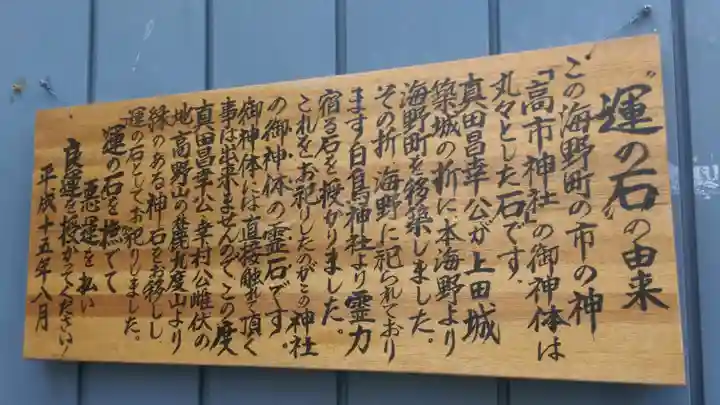 “運の石”の由来
この海野町の市の神
「高市神社」の御神体は
丸々とした石です。
真田昌幸公が上田城
築城の折に、本海野より
海野町を移築しました。
その折、海野に祀られており
ます白鳥神社より霊力
宿る石を授かりました。
これをお祀りしたのがこの神社
の御神体の霊石です。
御神体には直接触れて頂く
事は出来ませんので、この度
真田昌幸公・幸村公雌伏の
地、高野山の麓九度山より
縁のある神石をお移しし
運の石としてお祀りしました。
運の石を撫でて
悪運を払い
良運を授かってください！
平成十五年八月